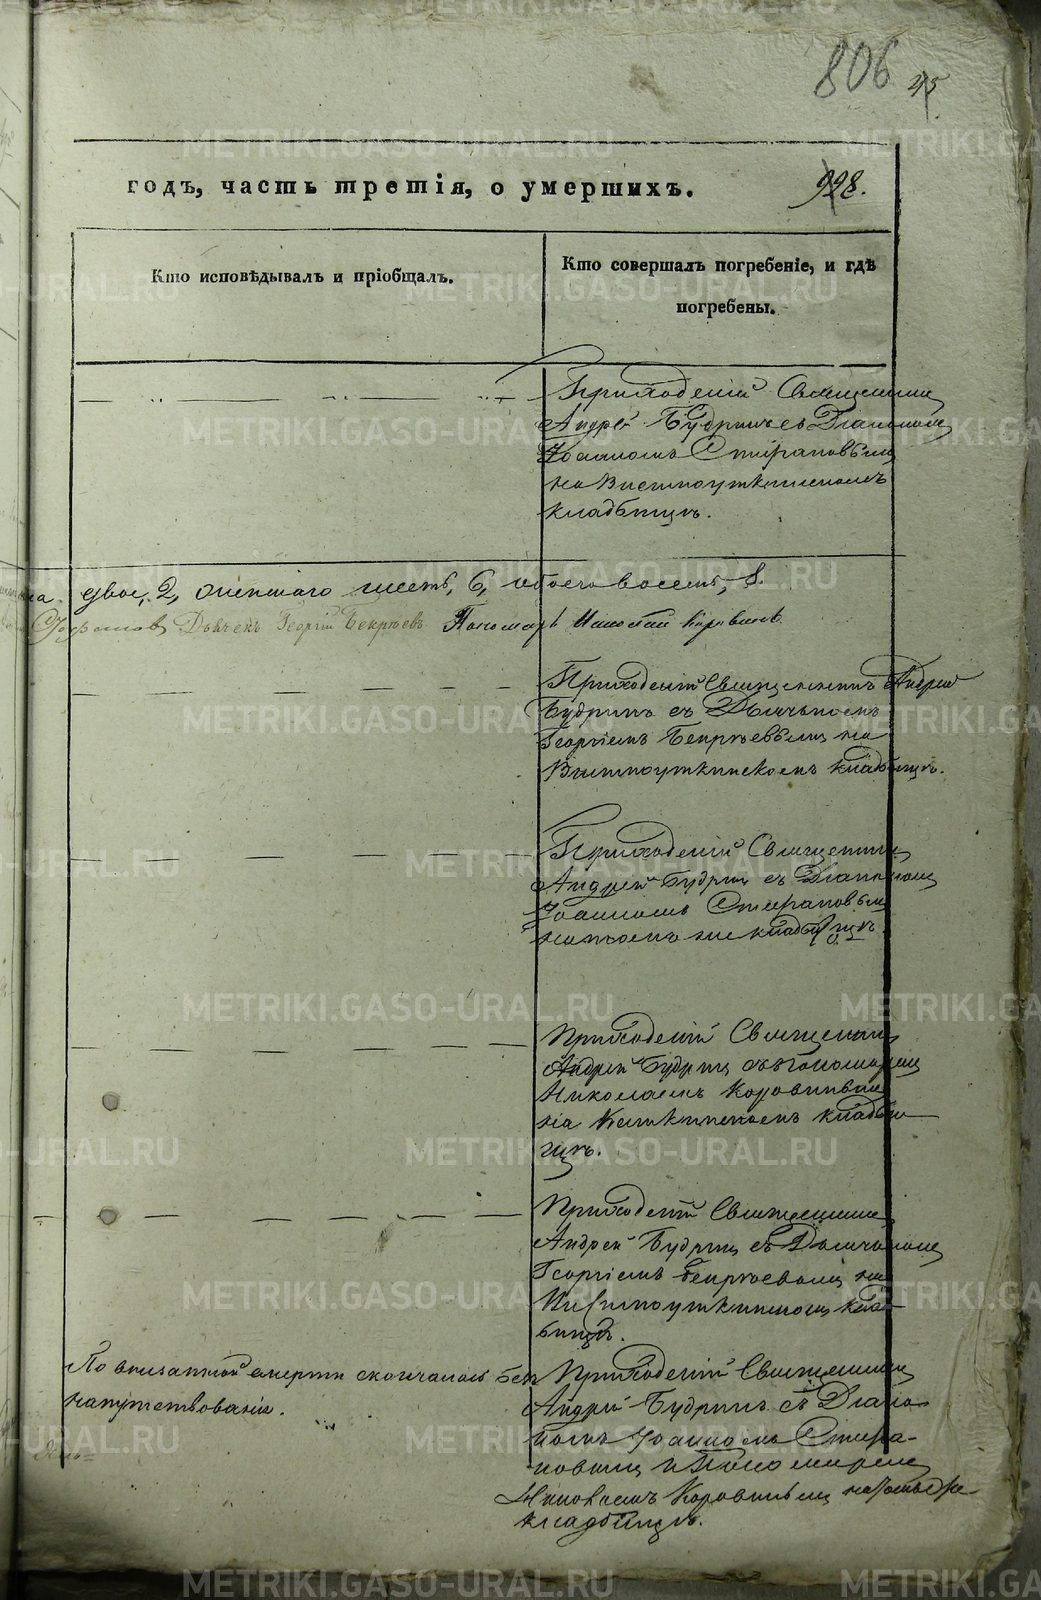 806 45
годъ, часть третія, о умершихъ. 928.
Кто исповѣдывалъ и пріобщалъ.
Кто совершалъ погребеніе, и гдѣ
погребены.
Приходскій Священник
Андрей Будринъ съ Діакономъ
Іоанномъ Стерановым
на Висимоуткинскомъ
кладбищѣ.
на двое, 2, женскаго шесть, 6, обоего восемь, 8.
Дьячекъ Георгій Бекрѣевъ Пономарь Николай Коровинъ
Приходскій Священникъ Андрей
Будринъ съ Дьячькомъ
Георгіемъ Бекрѣевымъ на
Висимоуткинскомъ кладбищѣ.
Приходскій Священник
Андрей Будрин съ Діакономъ
Іоанномъ Стерановым
на томъ же кладбищѣ.
Приходскій Священник
Андрей Будрин съ Пономарем
Николаемъ Коровиным
на кладби
щѣ.
Приходскій Священник
Андрей Будрин съ Дьячькомъ
Георгіемъ Бекрѣевым на
клад
бищѣ.
По внезапной смерти скончалась без
напутствованія.
Приходскій Священник
Андрей Будринъ съ Діако
номъ Іоанномъ Стера-
новым и Пономарем
Николаемъ Коровиным на томъ же
кладбищѣ.
METRIKI.GASO-URAL.RU